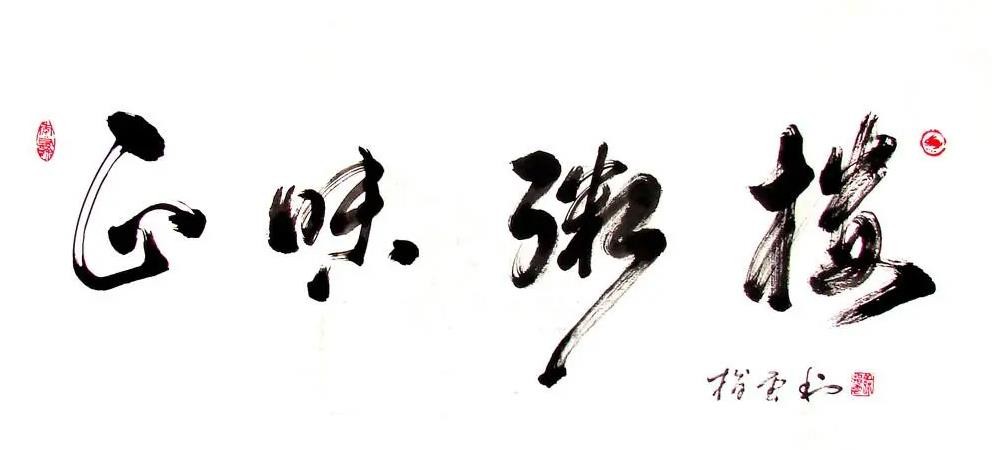 正味粥楼